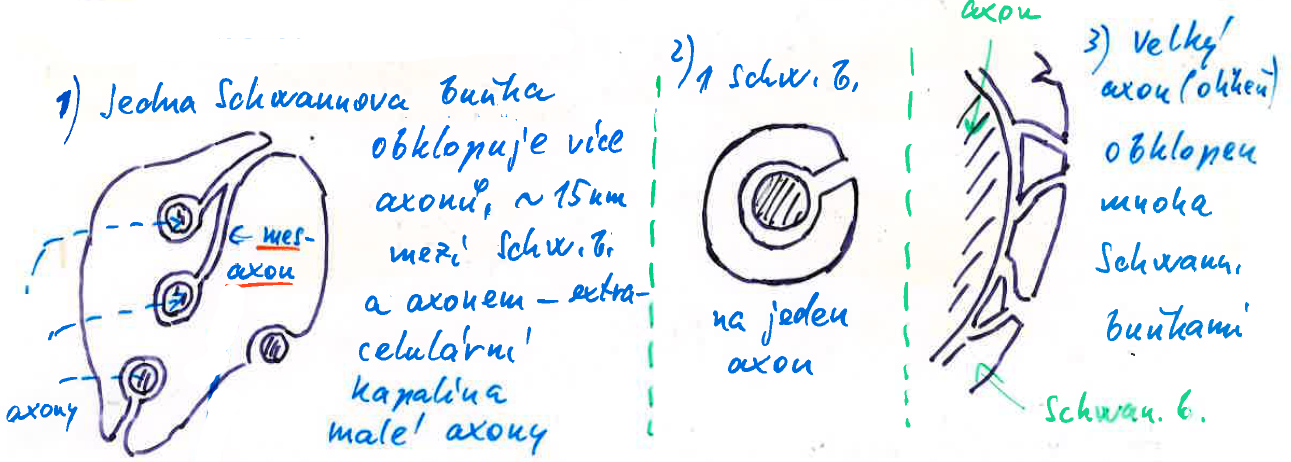 1) Jedna Schwannova buňka
obklopuje více
axonů, ~ 15 nm
mezi Schw. b.
a axonem – extra-
celulární
kapalina
malé axony
← mes-
axon
axony
2) 1 Schw. b.
na jeden
axon
axon
3) Velký
axon (oliheň)
obklopen
mnoha
Schwann.
buňkami
Schwan. b.